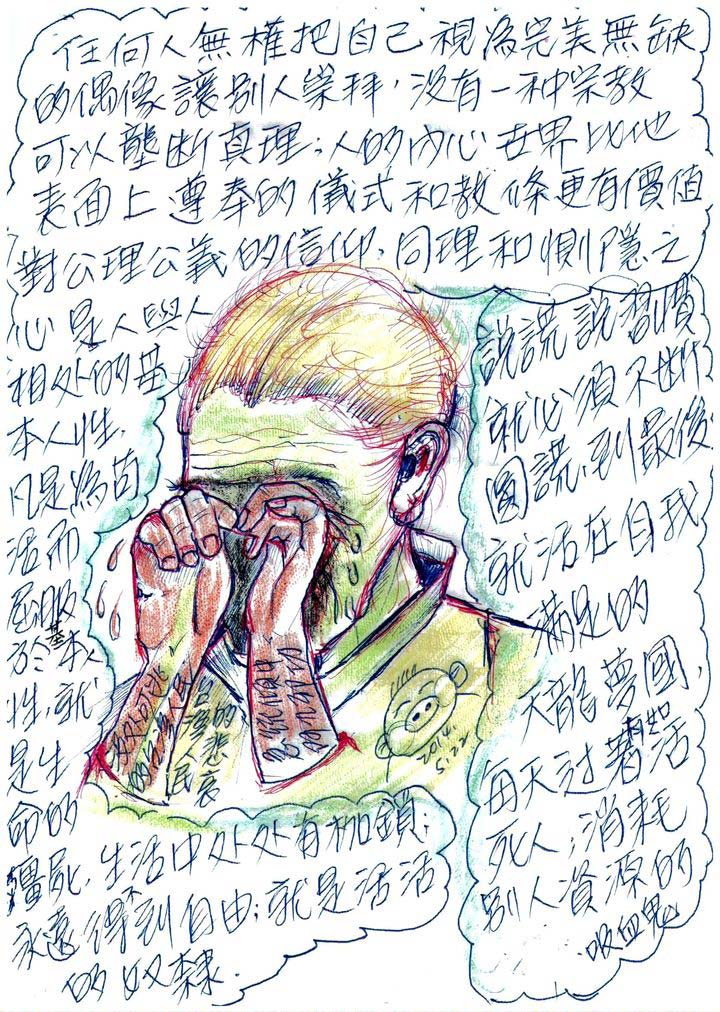 任何人無權把自己視為完美無缺
的偶像讓別人崇拜，沒有一种宗教
可以壟断真理；人的內心世界比他
表面上尊奉的儀式和教條更有價值
對公理公義的信仰，同理和惻隱之
心是人與人
相处的基
本人性，
凡是為苟
活而
屈服
於基本人
性，就
是生
命的
殭屍，生活中处处有枷鎖；
永遠得不到自由；就是活活
的奴隸．
說謊說習慣
就必須不断
圓謊，到最後
就活在自我
滿足的
天龍夢國，
每天过著有如活
死人；消耗
別人資源的
吸血鬼
台灣人民
的悲哀
2014.
5.22